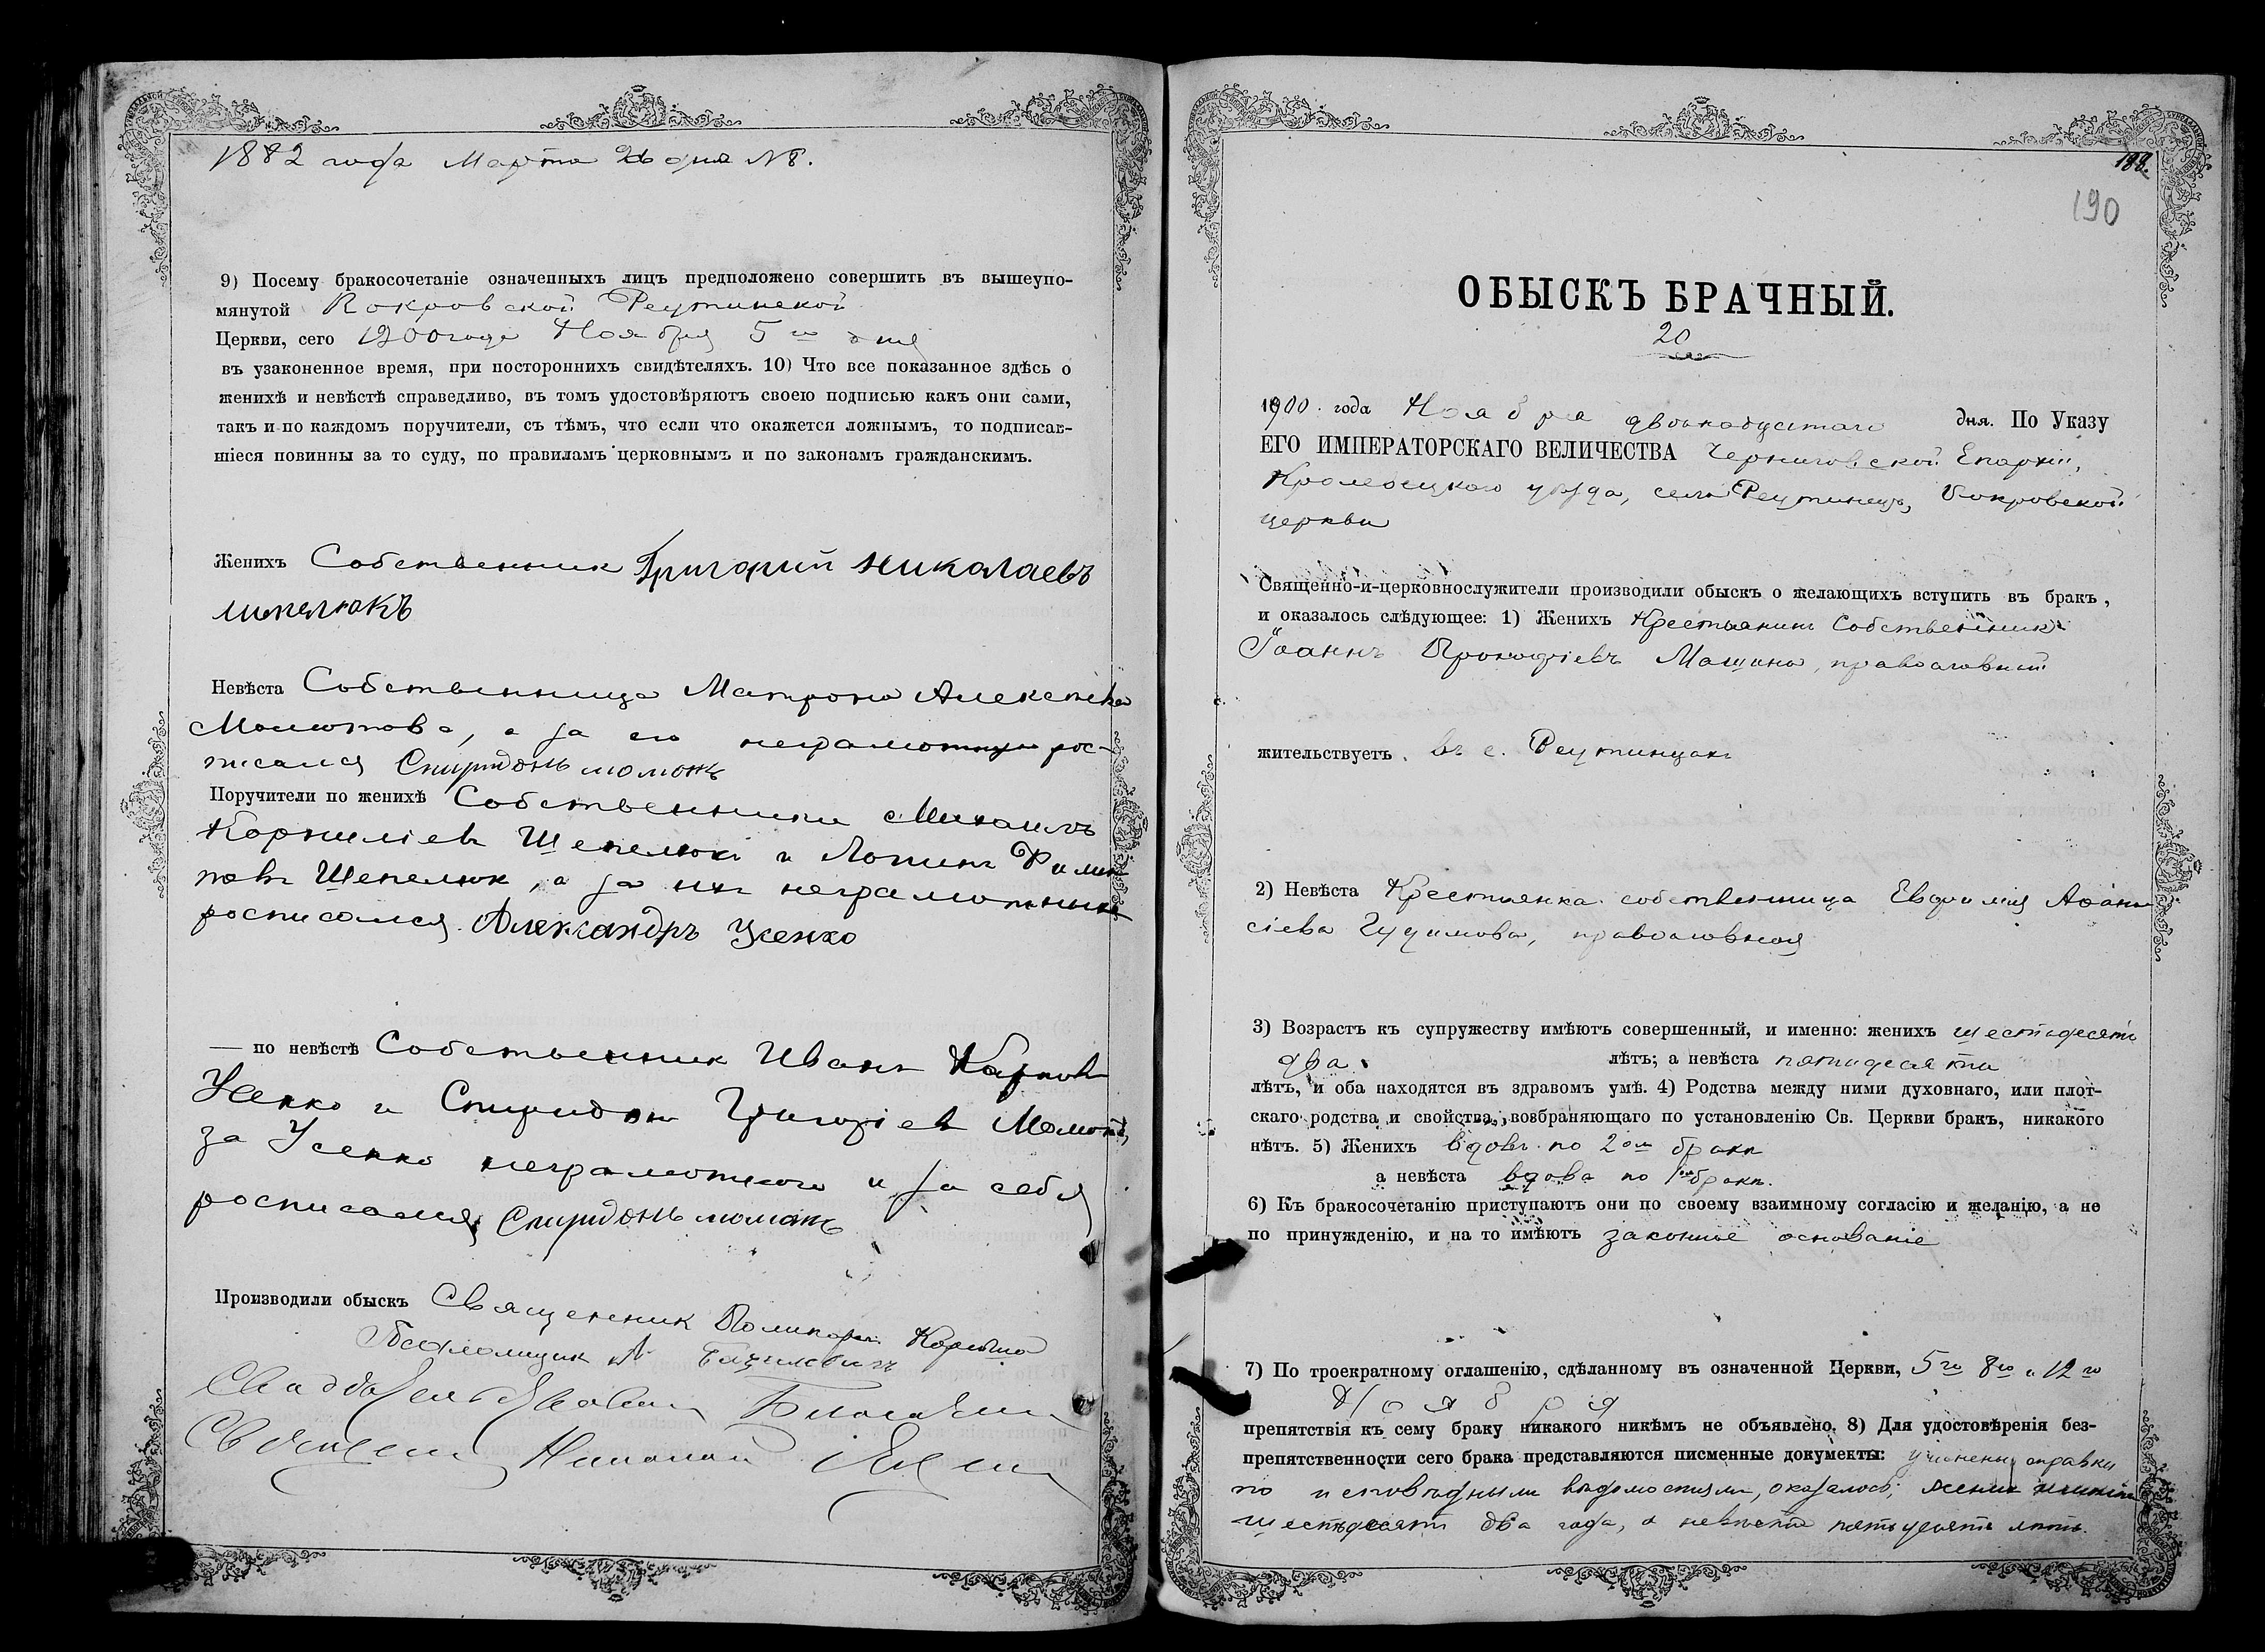 1882 года Марта 26 дня №8.
9) Посему бракосочетаніе означенныхъ лицъ предположено совершить въ вышеупо-
мянутой Покровской Реутинской
Церкви, сего 1900 года Ноября 5го дня
въ узаконенное время, при постороннихъ свидѣтеляхъ. 10) Что все показанное здѣсь о
женихѣ и невѣстѣ справедливо, въ томъ удостовѣряютъ своею подписью какъ они сами,
такъ и по каждомъ поручители, съ тѣмъ, что если что окажется ложнымъ, то подписав-
шіеся повинны за то суду, по правиламъ церковнымъ и по законамъ гражданскимъ.
Женихъ Собственник Григорий николаевъ
шепелюкъ
Невѣста Собственница Матрона Алексѣева
а за ея неграмотную рос-
писался Спиридонъ момотъ
Поручители по женихѣ Собственники Михаилъ
Корниліев Шепелюк и Логинъ Филип-
повъ Шепелюк, а за них неграмотных
росписался Александръ Усенко
— по невѣстѣ Собственник Иванъ Карпов
Усенко и Спиридонъ Григоріев Момотъ,
за Усенко неграмотного и за себя
росписался Спиридонъ момотъ
Производили обыскъ Священник Поликарпъ
Псаломщик
188
190
ОБЫСКЪ БРАЧНЫЙ.
20
1900. года Ноября двѣнадцатаго дня. По Указу
ЕГО ИМПЕРАТОРСКАГО ВЕЛИЧЕСТВА Черниговской Епархіи,
Кролевецкаго уѣзда, села Реутинецъ, Покровской
церкви
Священно-и-церковнослужители производили обыскъ о желающихъ вступить въ бракъ,
и оказалось слѣдующее: 1) Женихъ Крестьянинъ Собственникъ
Іоаннъ Прокофіевъ православный
жительствуетъ въ с. Реутинцахъ
2) Невѣста Крестьянка собственница Евфимія Аѳана-
сіева Гудимова, православная
3) Возрастъ къ супружеству имѣютъ совершенный, и именно: женихъ шестидесяти
два лѣтъ; а невѣста пятидесяти
лѣтъ, и оба находятся въ здравомъ умѣ. 4) Родства между ними духовнаго, или плот-
скаго родства и свойства, возбраняющаго по установленію Св. Церкви бракъ, никакого
нѣтъ. 5) Женихъ вдовъ по 2ом бракѣ
а невѣста вдова по 1ом бракѣ.
6) Къ бракосочетанію приступаютъ они по своему взаимному согласію и желанію, а не
по принужденію, и на то имѣютъ законное основаніе
7) По троекратному оглашенію, сдѣланному въ означенной Церкви, 5го 8го и 12го
Ноября
препятствія къ сему браку никакого никѣмъ не объявлено. 8) Для удостовѣренія без-
препятственности сего брака представляются писменные документы: учинены справки
по исповѣднымъ вѣдомостямъ, оказалось, жених имѣетъ
шестьдесятъ два года, а невѣста пятьдесятъ лѣтъ.